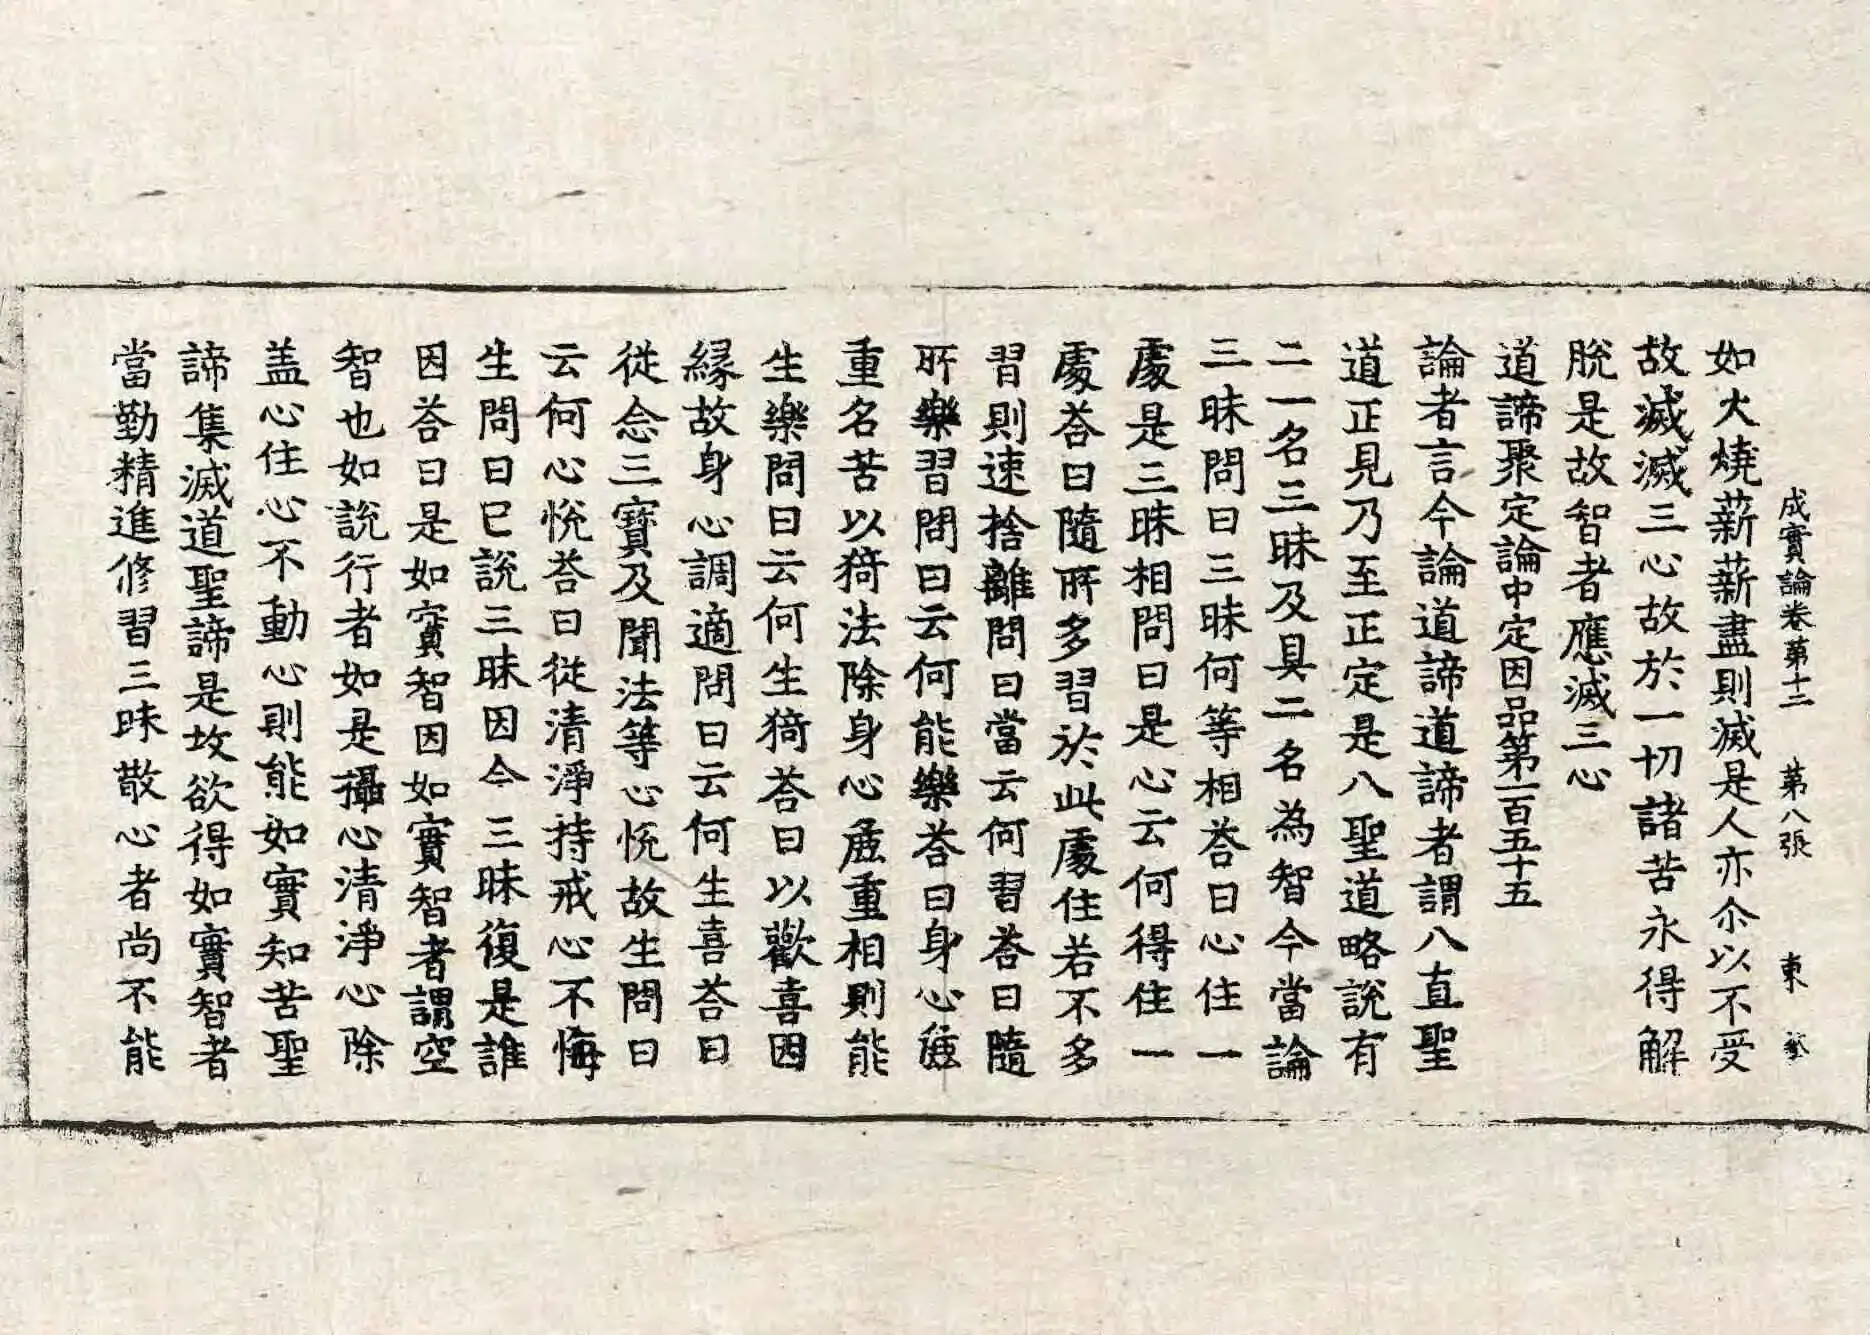 成實論卷第十二 第八張 東
如火燒薪薪盡則滅是人亦尒以不受
故滅滅三心故於一切諸苦永得解
脫是故智者應滅三心
道諦聚定論中定因品第一百五十五
論者言今論道諦道諦者謂八直聖
道正見乃至正定是八聖道略說有
二一名三昧及具二名為智今當論
三昧問曰三昧何等相荅曰心住一
處是三昧相問曰是心云何得住一
處荅曰隨所多習於此處住若不多
習則速捨離問曰當云何習荅曰隨
所樂習問曰云何能樂荅曰身心麁
重名苦以猗法除身心麁重相則能
生樂問曰云何生猗荅曰以歡喜因
緣故身心調適問曰云何生喜荅曰
從念三寶及聞法等心恱故生問曰
云何心恱荅曰從清淨持戒心不悔
生問曰已說三昧因今三昧復是誰
因荅曰是如實智因如實智者謂空
智也如說行者如是攝心清淨心除
盖心住心不動心則能如實知苦聖
諦集滅道聖諦是故欲得如實智者
當勤精進修習三昧散心者尚不能